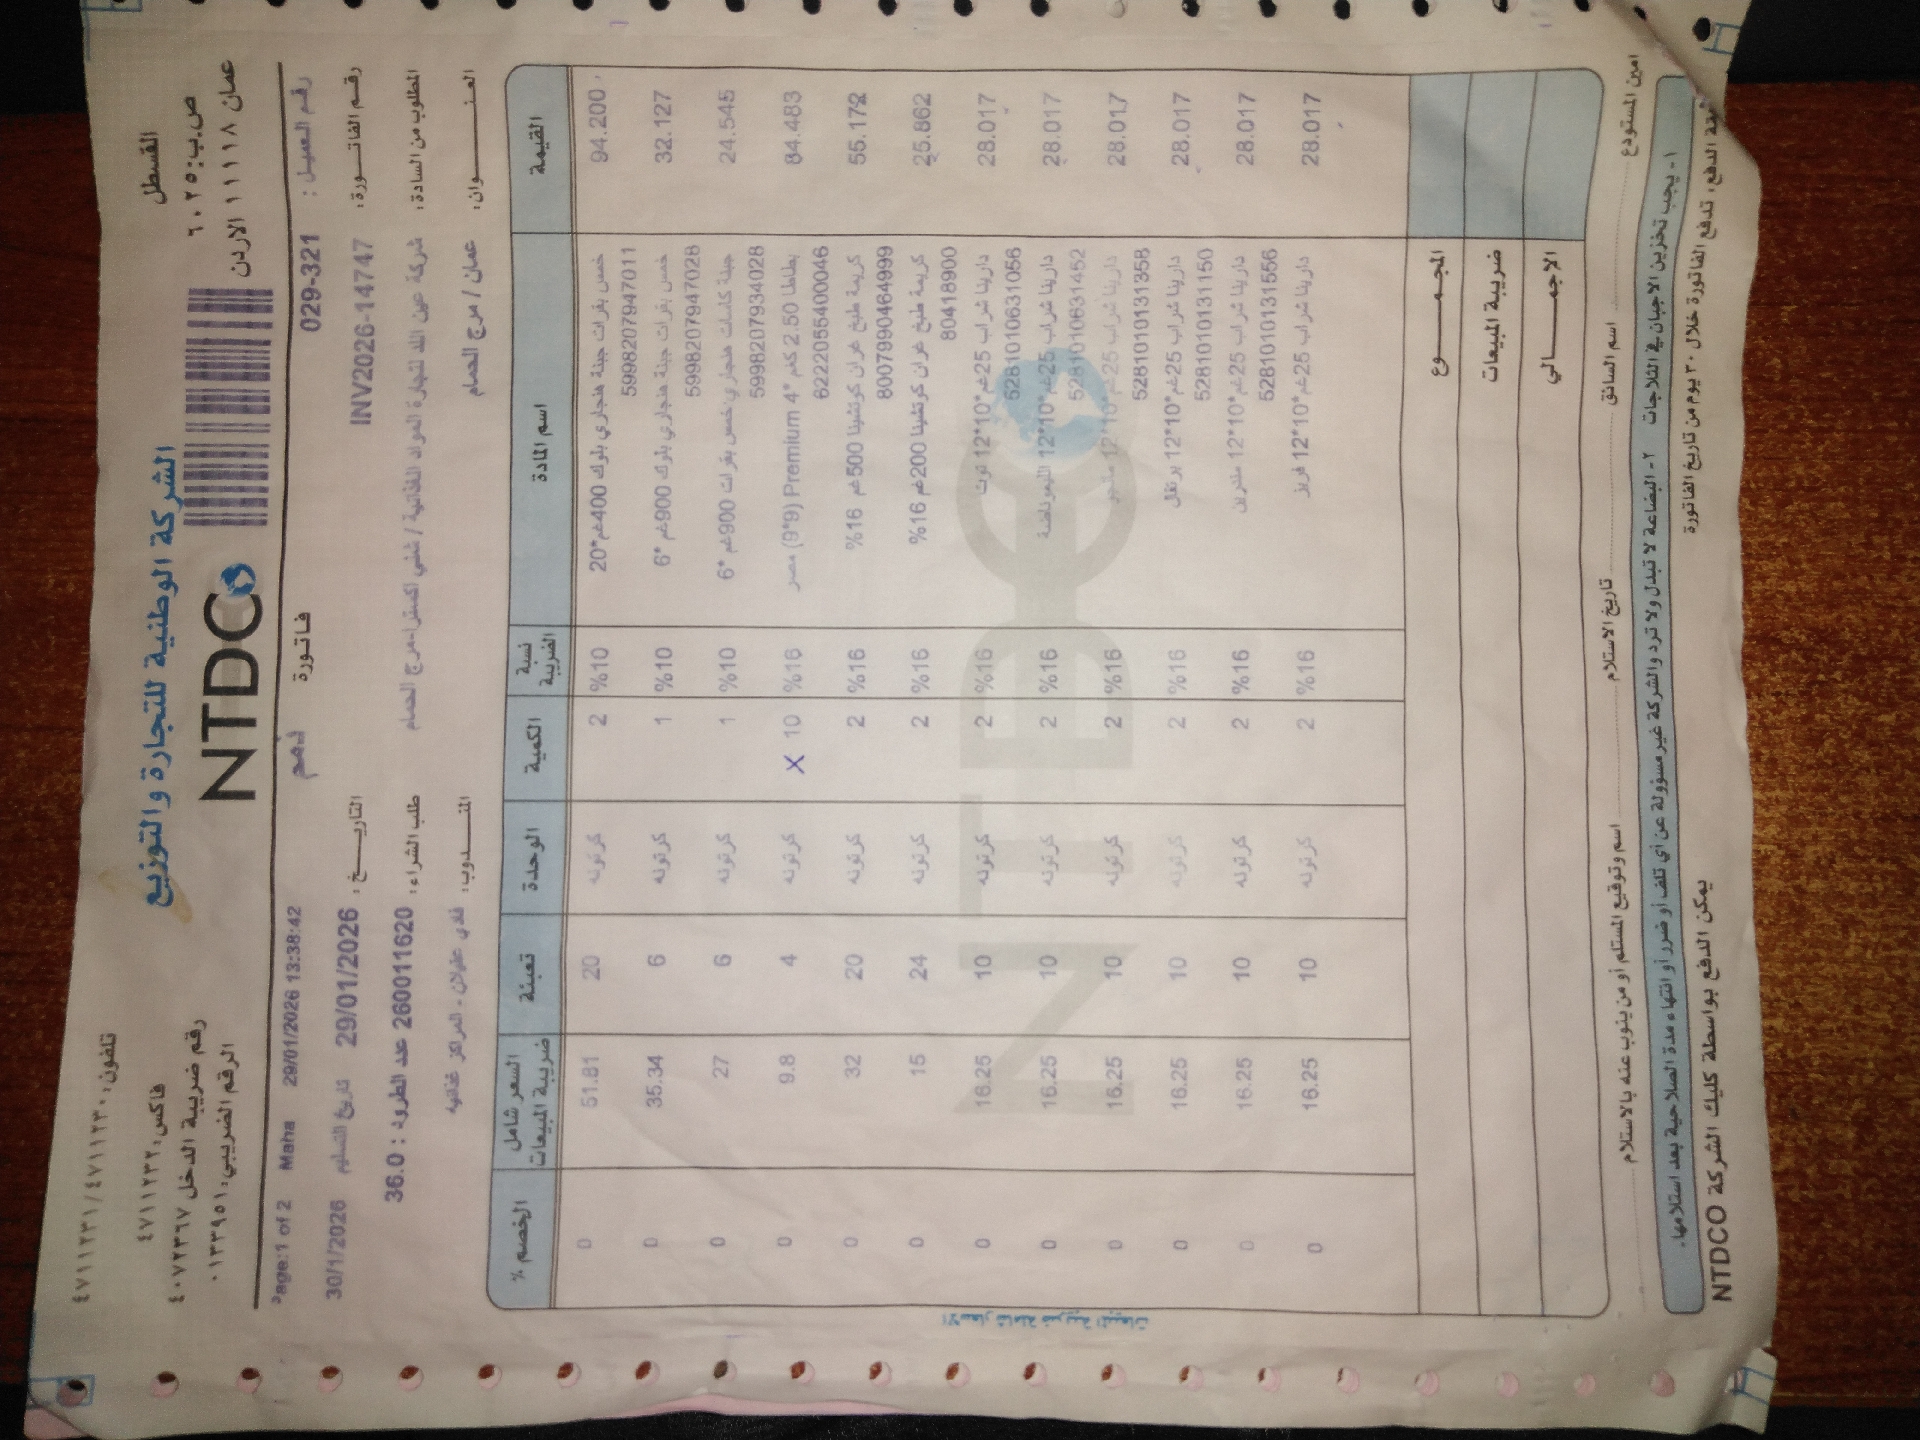 الشركة الوطنية للتجارة والتوزيع
NTDCO
القسطل
ص.ب: ٦٠٢٥
عمان ١١١١٨ الاردن
تلفون: ٤٧١١٢٣٠ / ٤٧١١٢٣١
فاكس: ٤٧١١٢٣٢
رقم ضريبة الدخل ٤٠٧٢٣٦٧
الرقم الضريبي: ٠١٣٣٩٥١
رقم العميل: 029-321
فاتورة ذمم
29/01/2026 13:38:42 Maha Page:1 of 2
رقم الفاتورة: INV2026-14747
التاريخ: 29/01/2026 تاريخ التسليم 30/1/2026
المطلوب من السادة: شركة عين اللد لتجارة المواد الغذائية / شلبي اكسترا-مرج الحمام
طلب الشراء: 260011620 عدد الطرود : 36.0
العنوان: عمان / مرج الحمام
المندوب: المراكز غذائيه
القيمة اسم المادة نسبة الضريبة الكمية الوحدة تعبئة السعر شامل ضريبة المبيعات الخصم %
94.200 خمس بقرات جبنة هنجاري بلوك 400غم*20 %10 2 كرتونه 20 51.81 0
5998207947011
32.127 خمس بقرات جبنة هنجاري بلوك 900غم *6 %10 1 كرتونه 6 35.34 0
5998207947028
24.545 جبنة كاسات هنجاري خمس بقرات 900غم *6 %10 1 كرتونه 6 27 0
5998207934028
84.483 بطاطا 2.50 كغم *4 Premium (9*9) مصر %16 10 X كرتونه 4 9.8 0
6222055400046
55.172 كريمة طبخ غران كوتشينا 500غم %16 %16 2 كرتونه 20 32 0
8007990464999
25.862 كريمة طبخ غران كوتشينا 200غم %16 %16 2 كرتونه 24 15 0
80418900
28.017 دارينا شراب 25غم*10*12 توت %16 2 كرتونه 10 16.25 0
5281010631056
28.017 دارينا شراب 25غم*10*12 %16 2 كرتونه 10 16.25 0
5281010631452
28.017 دارينا شراب 25غم*10*12 مانجو %16 2 كرتونه 10 16.25 0
5281010131358
28.017 دارينا شراب 25غم*10*12 برتقال %16 2 كرتونه 10 16.25 0
5281010131150
28.017 دارينا شراب 25غم*10*12 %16 2 كرتونه 10 16.25 0
5281010131556
28.017 دارينا شراب 25غم*10*12 فريز %16 2 كرتونه 10 16.25 0
المجموع
ضريبة المبيعات
الاجمالي
الاسعار شاملة ضريبة المبيعات
امين المستودع اسم السائق تاريخ الاستلام اسم وتوقيع المستلم أو من ينوب عنه بالاستلام
١- يجب تخزين الاجبان في الثلاجات ٢- البضاعة لا تبدل ولا ترد والشركة غير مسؤولة عن أي تلف أو ضرر أو انتهاء مدة الصلاحية بعد استلامها.
الدفع: تدفع الفاتورة خلال ٣٠ يوم من تاريخ الفاتورة يمكن الدفع بواسطة كليك الشركة NTDCO